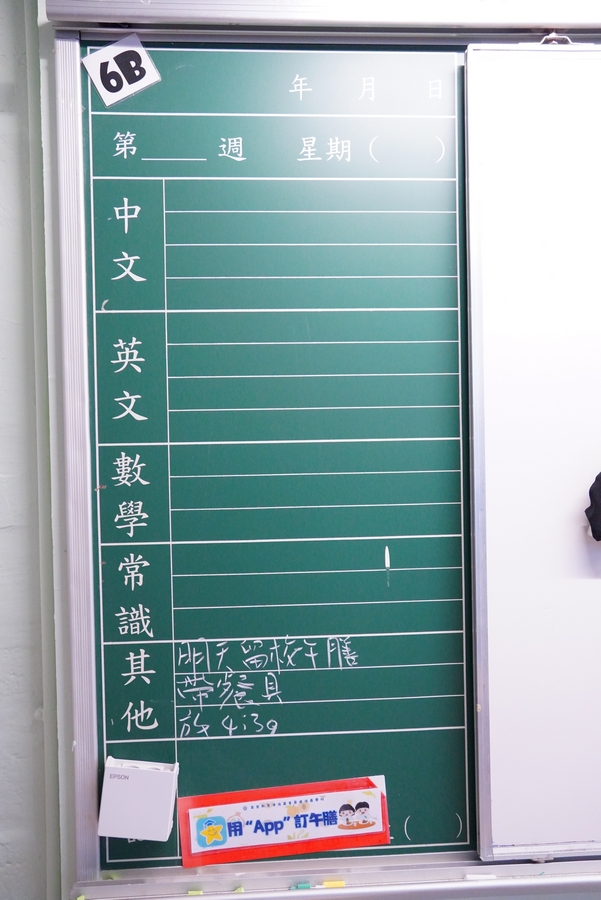 6B
年 月 日
第____週 星期( )
中文
英文
數學
常識
其他
明天留校午膳
帶餐具
放4:30
EPSON
用“App”訂午膳
( )